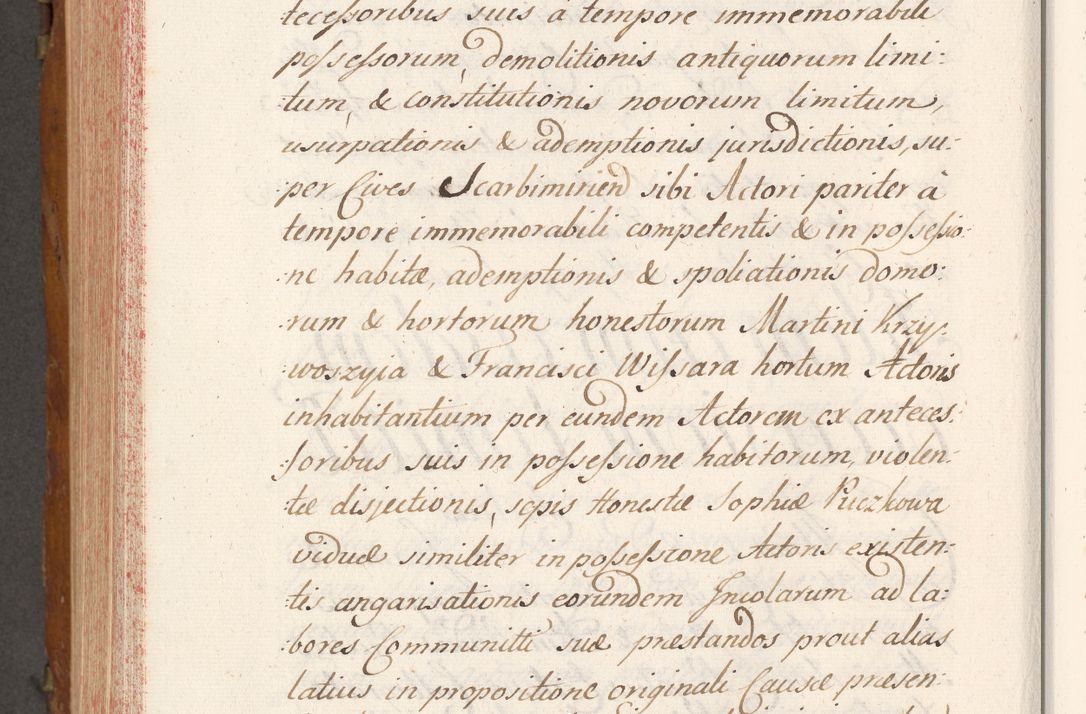 tecessoribus suis à tempore immemorabili
possessorum, demolitionis antiquorum limi:
tum, & constitutionis novorum limitum,
usurpationis & ademptionis jurisdictionis, su:
per Cives Scarbimiriend sibi Actori pariter à
tempore immemorabili competentis & in possessio:
ne habitæ, ademptionis & spoliationis domo:
rum & hortorum honestorum Martini Krzy:
woszyja & Francisci Wissara hortum Actoris
inhabitantium per eundem Actorem ex anteces:
soribus suis in possessione habitorum, violen:
tæ disjectionis, sepis Honestæ Sophiæ Kuczkowa
viduæ similiter in possessione Actoris existen:
tis angarisationis eorundem Incolarum ad la:
bores Communitti suæ præstandos prout alias
latius in propositione originali Causæ præsen: